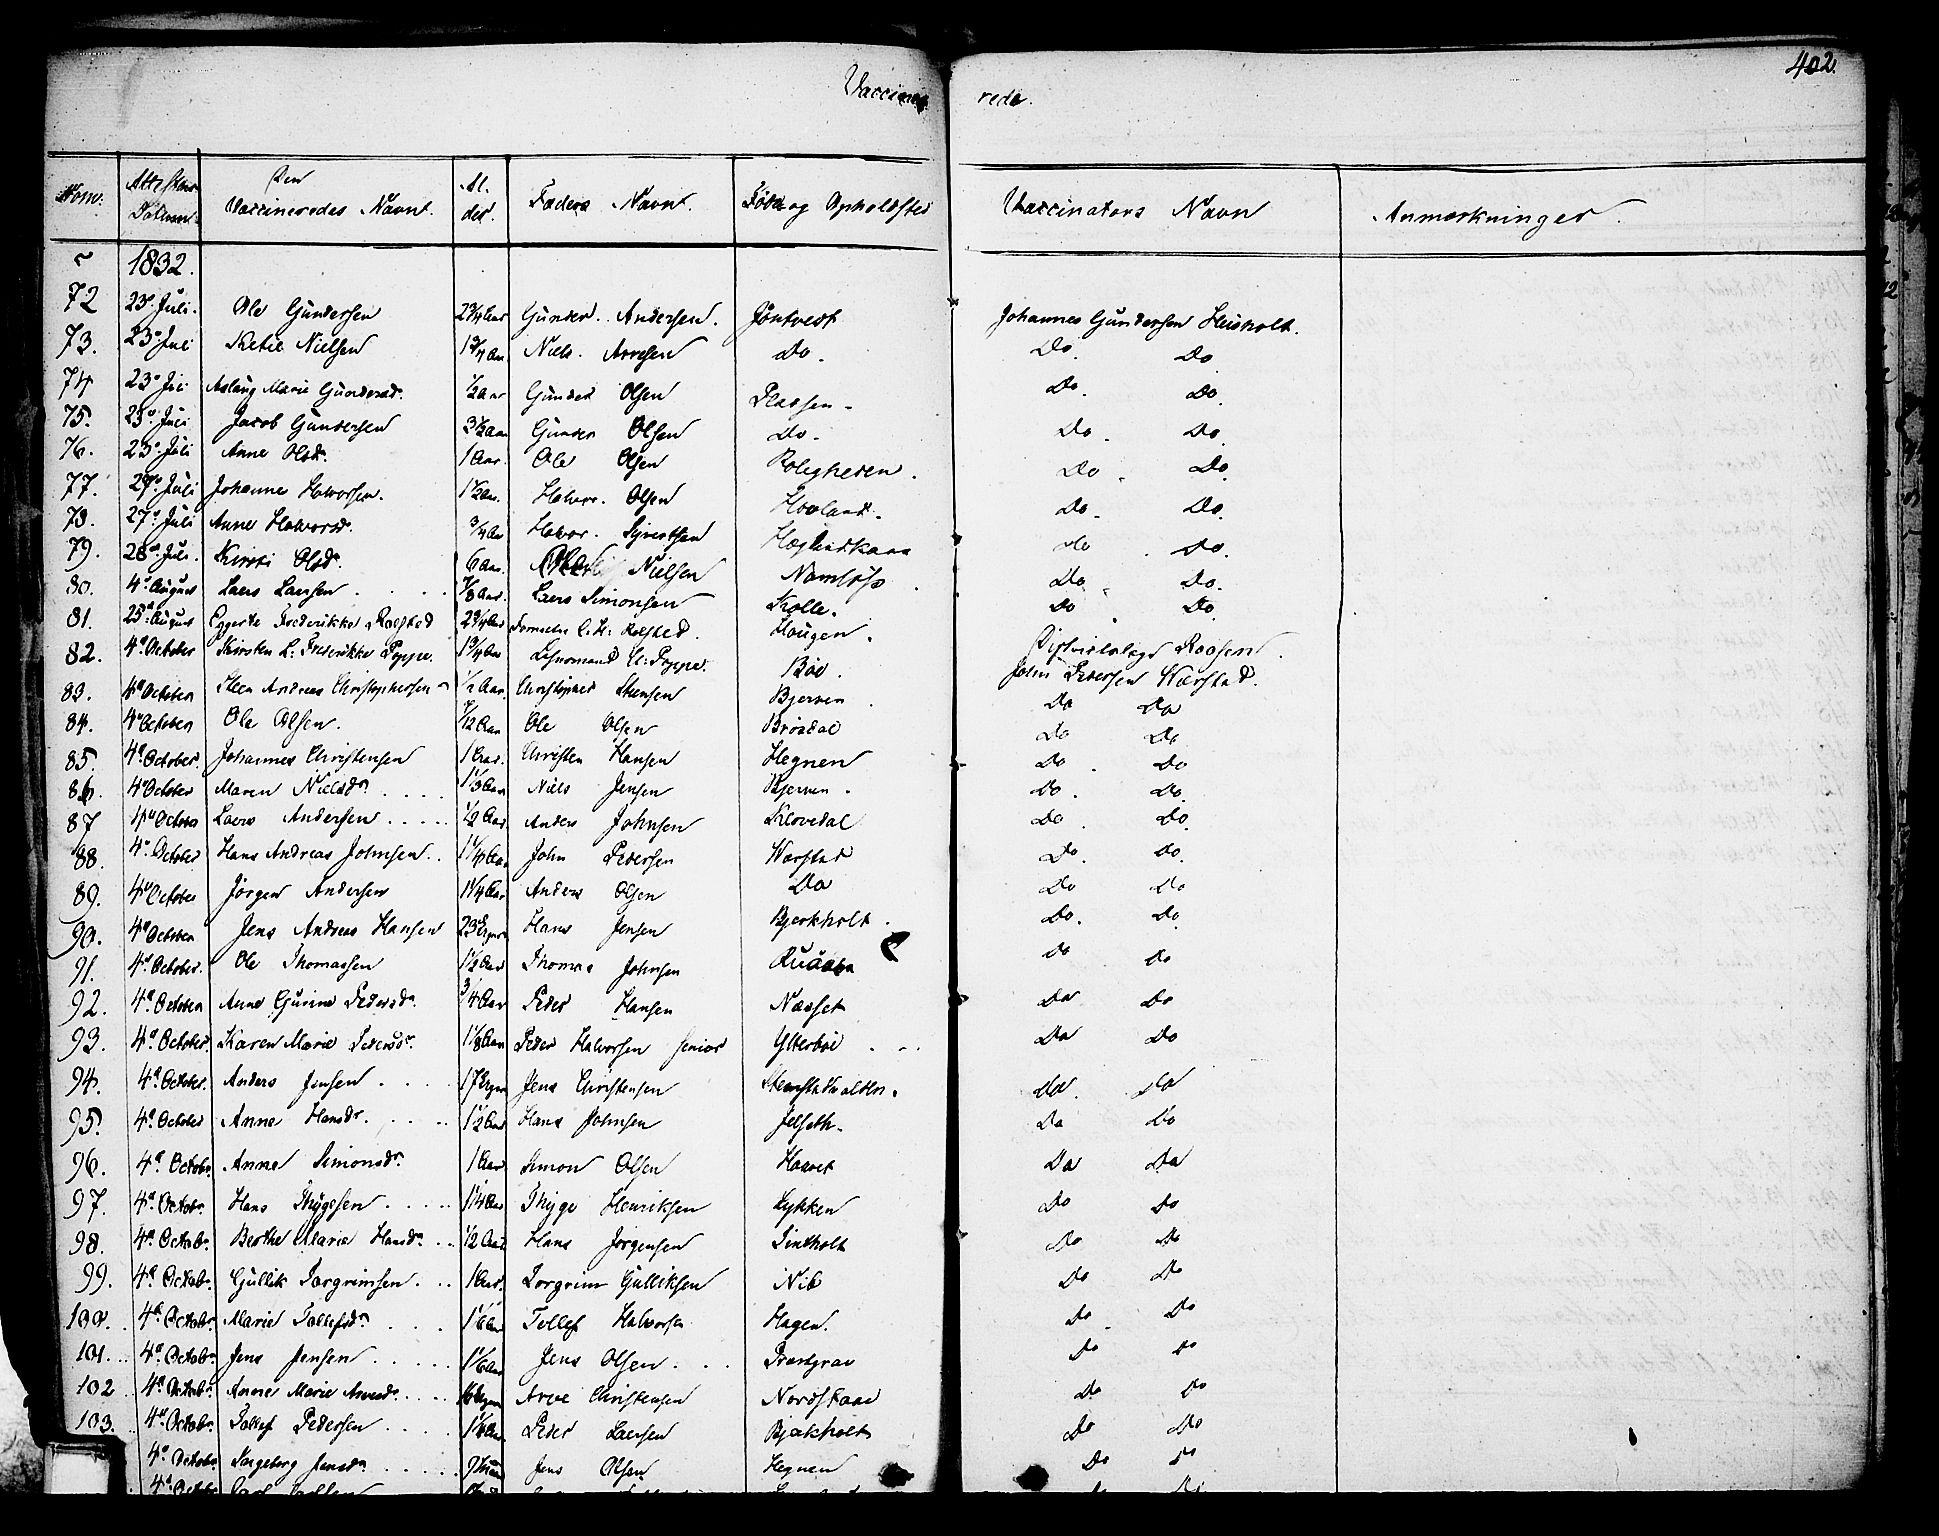 402.
Vaccinerede.
Nom. Attestens Datum. Den Vaccineredes Navn. Alder. Faders Navn. Føde og Opholdsted Vaccinators Navn Anmærkninger.
1832.
72 23de Juli. Ole Gundersen 2 3/4 Aar Gunder Andersen. Jöntvedt Johannes Gundersen Heisholt.
73. 23de Juli Ketil Nielsen 1 3/4 Aar Niels Arvesen Do. Do. Do.
74 23de Juli Aslaug Marie Gundersd. 1/2 Aar Gunder Olsen Pladsen Do. Do.
75. 23de Juli Jacob Gundersen 3 1/2 Aar Gunder Olsen Do. Do. Do.
76. 23de Juli Anne Olsd. 1 Aar. Ole Olsen Roligheden. Do. Do.
77. 27de Juli Johanne Halvorsen. 1 1/2 Aar. Halvor Olsen Hovland. Do. Do.
78. 27de Juli Anne Halvorsd. 3/4 Aar Halvor Syvertsen Do. Do.
79. 28de Juli. Kirsti Olsd. 6 Aar. Nielsen Namløs. Do. Do.
80. 4de August Laers Larsen Laers Simonsen Kolle. Do. Do.
81. 25de August Frederikke Rolfsted 2 3/4 Aar Rolfsted. Haugen.
82. 4de October Kirsten L. Frederikke Poppe. 1 3/4 Aar Lehnsmand C. Poppe. Böe. John Pedersen Wærstad.
83. 4de October Steen Andreas Christophersen 1/2 Aar Christopher Stensen Bjerven Do Do
84. 4de October Ole Olsen. Ole Olsen Brösdal Do Do
85. 4de October. Johannes Christensen 1 Aar. Christen Hansen Hegnen Do Do
86. 4de October Maren Nielsd. 1 1/3 Aar Niels Jensen Bjerven. Do. Do.
87 4de October Laers Andersen 1/2 Aar. Anders Johnsen Klovedal Do Do.
88. 4de October Hans Andreas Johnsen 1 1/4 Aar John Pedersen Wærstad Do. Do.
89. 4de October Jörgen Andersen 1 1/4 Aar Anders Olsen Do Do Do
90. 4de October Jens Andreas Hansen 23 Uger Hans Jensen Bjerkholt. Do. Do.
91. 4de October. Ole Thomassen 1 1/2 Aar Thomas Johnsen Do Do
92. 4de October Anne Gurine Pedersd. 3/4 Aar Peder Hansen Næsset Do Do
93. 4de October. Karen Marie Pedersdr. 1 1/8 Aar Peder Halvorsen senior Ytterböe Do Do
94. 4de October. Anders Jensen 17 Uger Jens Christensen Do. Do
95. 4de October Anne Hansd. 1 1/2 Aar Hans Johnsen Jelseth. Do Do
96. 4de October Anne Simonsdr. 1 Aar Simon Olsen Haavet Do Do
97. 4de Octobr. Hans Thygesen 1 1/4 Aar Thyge Henriksen Lykken Do Do
98. 4de Octobr. Berthe Marie Hansdr. 1/2 Aar Hans Jörgensen Sintholt Do Do
99. 4de Octobr. Gullik Torgrimsen 1 Aar. Torgrim Gulliksen Nib Do Do
100. 4de Octobr. Marie Tollefsdr. 1 1/6 Aar Tollef Halvorsen Hagen. Do Do
101. 4de Octobr Jens Jensen 1 1/6 Aar Jens Olsen Prestgrav Do Do
102 4de Octobr. Anne Marie Arvesdr. 16 Uger Arve Christensen Nordstaae Do Do
103. 4de Octobr. Tollef Pedersen 1 1/6 Aar. Peder Laersen Bjækholt Do Do
4de Octobr. Ingeborg Jensdr. Jens Olsen Hegnen Do
4de Octobr